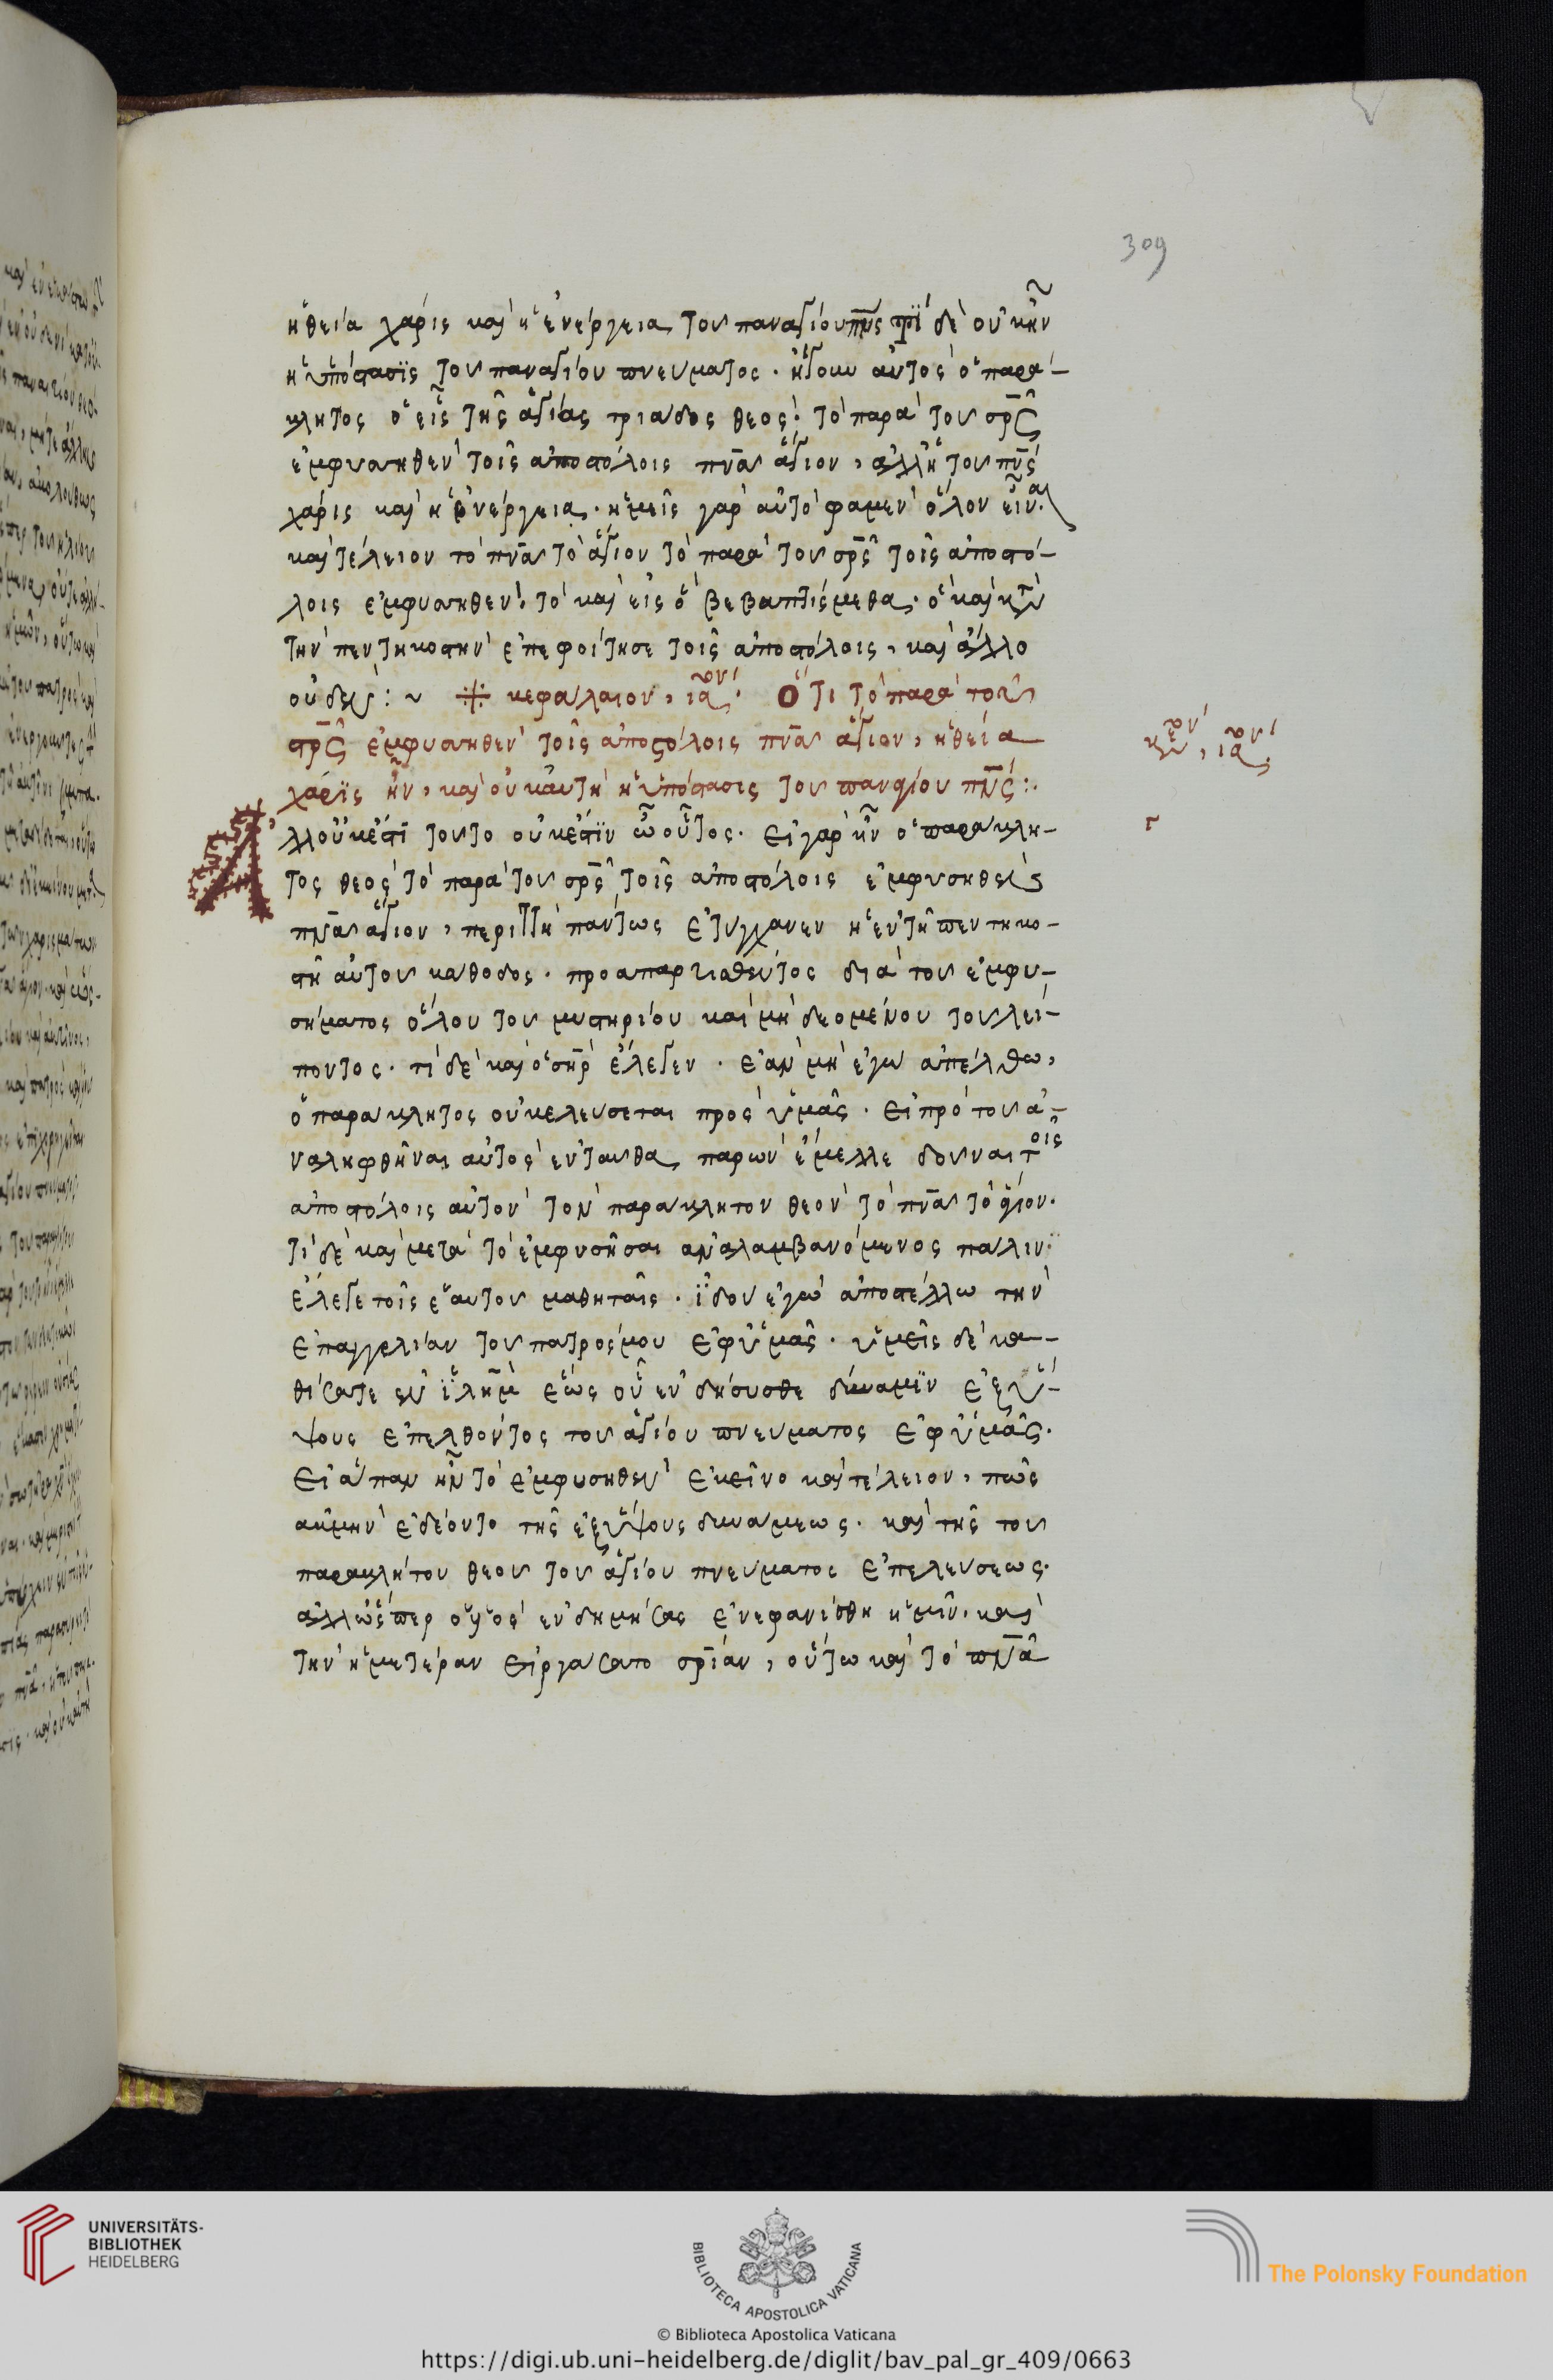 309
ἡ θεία χάρις καὶ ἡ ἐνέργεια τοῦ παναγίου πνς φϊ δὲ οὐκ ἦν
ἡ ὑπόστασϊς τοῦ παναγίου πνεύματος· ἤγουν αὐτὸς ὁ παρά-
κλητος ὁ εἷς τῆς ἁγίας τριάδος θεός· τὸ παρὰ τοῦ σρς
ἐμφυσηθὲν τοῖς ἀποστόλοις πνα ἅγιον, ἀλλ' ἡ τοῦ πνς
χάρις καὶ ἡ ἐνέργεια· ἡμεῖς γὰρ αὐτό φαμεν ὅλον εἶναι
καὶ τέλειον τὸ πνα τὸ ἅγιον τὸ παρὰ τοῦ σρς τοῖς ἀποστό-
λοις ἐμφυσηθὲν· τὸ καὶ εἰς ὃ βεβαπτίσμεθα· ὃ καὶ κτ
τὴν πεντηκοστὴν ἐπεφοίτησε τοῖς ἀποστόλοις, καὶ ἄλλο
οὐδέν :~ κεφάλαιον, ιαον· Ὅτι τὸ παρὰ τοῦ
σρς ἐμφυσηθὲν τοῖς ἀποστόλοις πνα ἅγιον, ἡ θεία
χάρϊς ἦν, καὶ οὐκ αὐτὴ ἡ ὑπόστασις τοῦ παναγίου πνς :·
Ἀλλ' οὐκ ἔστϊ τοῦτο οὐκ ἔστϊν ὦ οὗτος· εἰ γὰρ ἦν ὁ παράκλη-
τος θεὸς τὸ παρὰ τοῦ σρς τοῖς ἀποστόλοις ἐμφυσηθὲν
πνα ἅγιον, περιττὴ πάντως ἐτύγχανεν ἡ ἐν τῇ πεντηκο-
στῇ αὐτοῦ κάθοδος· προαπαρτισθέντος διὰ τοῦ ἐμφυ-
σήματος ὅλου τοῦ μυστηρίου καὶ μὴ δεομένου τοῦ λεί-
ποντος· τί δὲ καὶ ὁ σηρ ἔλεγεν· ἐὰν μὴ ἐγὼ ἀπέλθω,
ὁ παράκλητος οὐκ ἐλεύσεται πρὸς ὑμᾶς· εἰ πρὸ τοῦ ἀ-
ναληφθῆναι αὐτὸς ἐνταῦθα παρὼν ἔμελλε δοῦναι τοῖς
ἀποστόλοις αὐτὸν τὸν παράκλητον θεὸν τὸ πνα τὸ ἅγιον·
τί δὲ καὶ μετὰ τὸ ἐμφυσῆσαι ἀναλαμβανόμενος πάλιν
ἔλεγε τοῖς ἑαυτοῦ μαθηταῖς· ϊδοὺ ἐγὼ ἀποστέλλω τὴν
ἐπαγγελίαν τοῦ πατρός μου ἐφ' ὑμᾶς· ὑμεῖς δὲ κα-
θίσατε ἐν ϊλημ ἕως οὗ ἐνδύσησθε δύναμϊν ἐξ ὕ-
ψους ἐπελθόντος τοῦ ἁγίου πνεύματος ἐφ' ὑμᾶς·
εἰ ἅπαν ἦν τὸ ἐμφυσηθὲν ἐκεῖνο καὶ τέλειον, πῶς
ἀκμὴν ἐδέοντο τῆς ἐξ ὕψους δυνάμεως· καὶ τῆς τοῦ
παρακλήτου θεοῦ τοῦ ἁγίου πνεύματος ἐπελεύσεως·
ἀλλ' ὥσπερ ὁ υἱὸς ἐνδημήσας ἐνεφανίσθη ἡμῖν, καὶ
τὴν ἡμετέραν εἰργάσατο σρίαν, οὕτω καὶ τὸ πνα
UNIVERSITÄTS-
BIBLIOTHEK
HEIDELBERG
BIBLIOTECA APOSTOLICA VATICANA
The Polonsky Foundation
© Biblioteca Apostolica Vaticana
https://digi.ub.uni-heidelberg.de/diglit/bav_pal_gr_409/0663